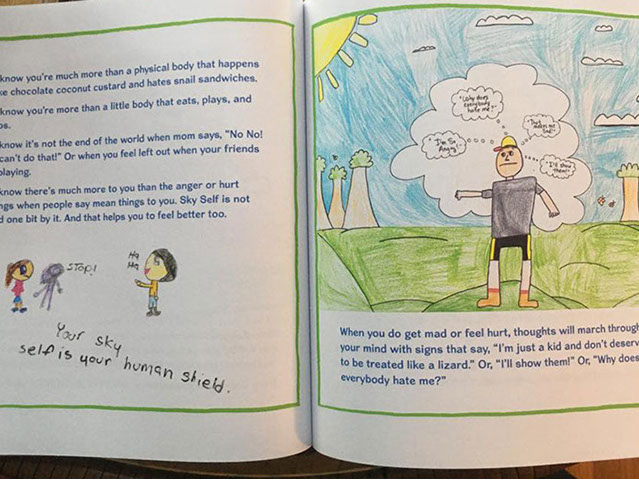 know you're much more than a physical body that happens
ke chocolate coconut custard and hates snail sandwiches.
know you're more than a little body that eats, plays, and
ps.
know it's not the end of the world when mom says, "No No!
can't do that!" Or when you feel left out when your friends
playing.
know there's much more to you than the anger or hurt
ngs when people say mean things to you. Sky Self is not
d one bit by it. And that helps you to feel better too.
STOP!
Ha
Ha
Your sky
self is your human shield.
"Why does
everybody
hate me?"
"I'm So
Angry"
"I'll show
them!"
When you do get mad or feel hurt, thoughts will march through
your mind with signs that say, "I'm just a kid and don't deserv
to be treated like a lizard." Or, "I'll show them!" Or, "Why does
everybody hate me?"